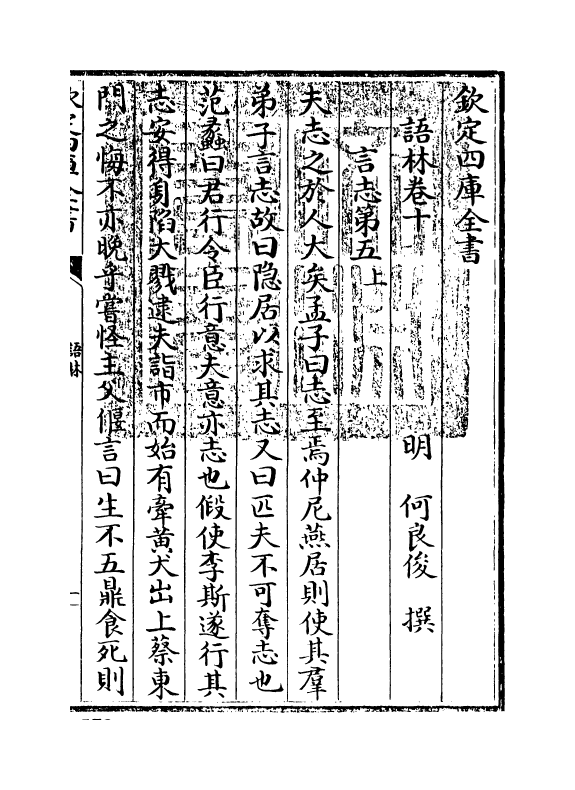 欽定四庫全書
語林卷十
明　何良俊　撰
言志第五上
夫志之於人大矣孟子曰志至焉仲尼燕居則使其羣
弟子言志故曰隐居以求其志又曰匹夫不可奪志也
范蠡曰君行令臣行意夫意亦志也假使李斯遂行其
志安得罔陷大戮逮夫詣市而始有牽黄犬出上蔡東
門之悔不亦晚乎嘗怪主父偃言曰生不五鼎食死則
語林